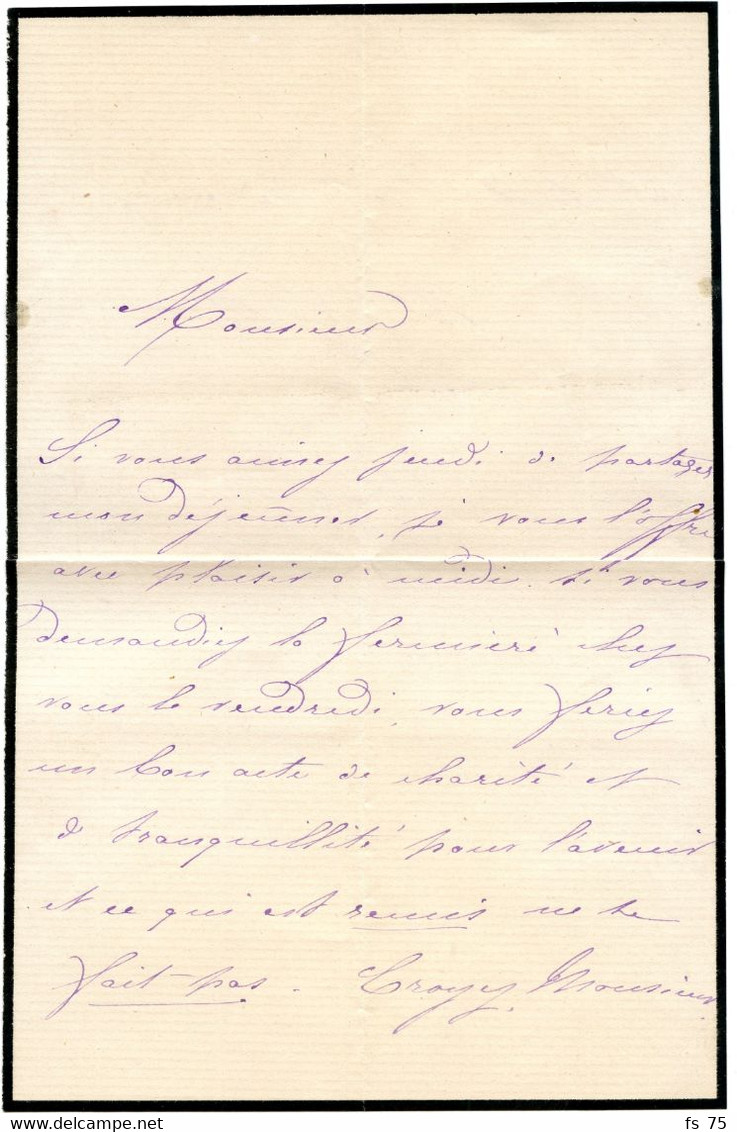 Monsieur
Si vous aimez jeudi de partager
mon déjeuner, je vous l'offre
avec plaisir à midi. Si vous
demandiez la fermière chez
vous le vendredi, vous feriez
un bon acte de charité et
d tranquillité pour l'avenir
et ce qui est remis ne se
fait pas. Croyez, Monsieur,
www.delcampe.net
fs_75